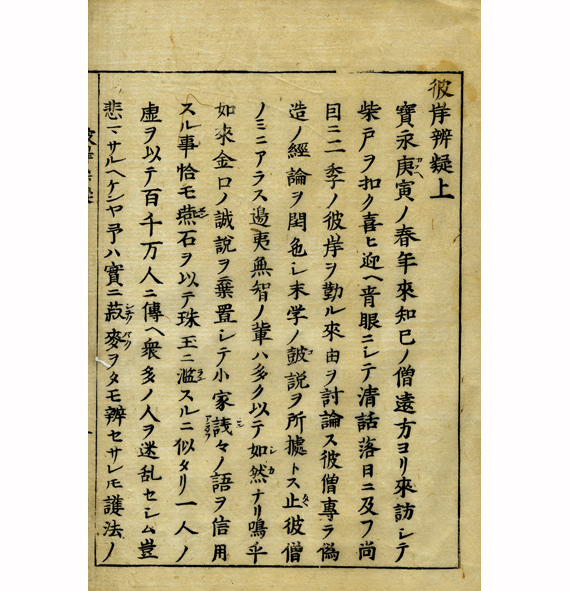 彼岸辨疑上
寶永庚寅ノ春年來知己ノ僧遠方ヨリ來訪シテ
柴戸ヲ扣ク喜ヒ迎ヘ青眼ニシテ清話落日ニ及フ尚
目ニ二季ノ彼岸ヲ勤ル來由ヲ討論ス彼僧專ラ僞
造ノ經論ヲ閏色シ末学ノ皷説ヲ所據トス止彼僧
ノミニアラス邉夷無智ノ輩ハ多ク以テ如然ナリ鳴乎
如來金口ノ誠説ヲ棄置シテ小家諓々ノ語ヲ信用
スル事恰モ燕石ヲ以テ珠玉ニ濫スルニ似タリ一人ノ
虚ヲ以テ百千万人ニ傳ヘ衆多ノ人ヲ迷乱セシム豈
悲マサルヘケンヤ予ハ實ニ菽麥ヲタモ辨セサレ𪜈護法ノ